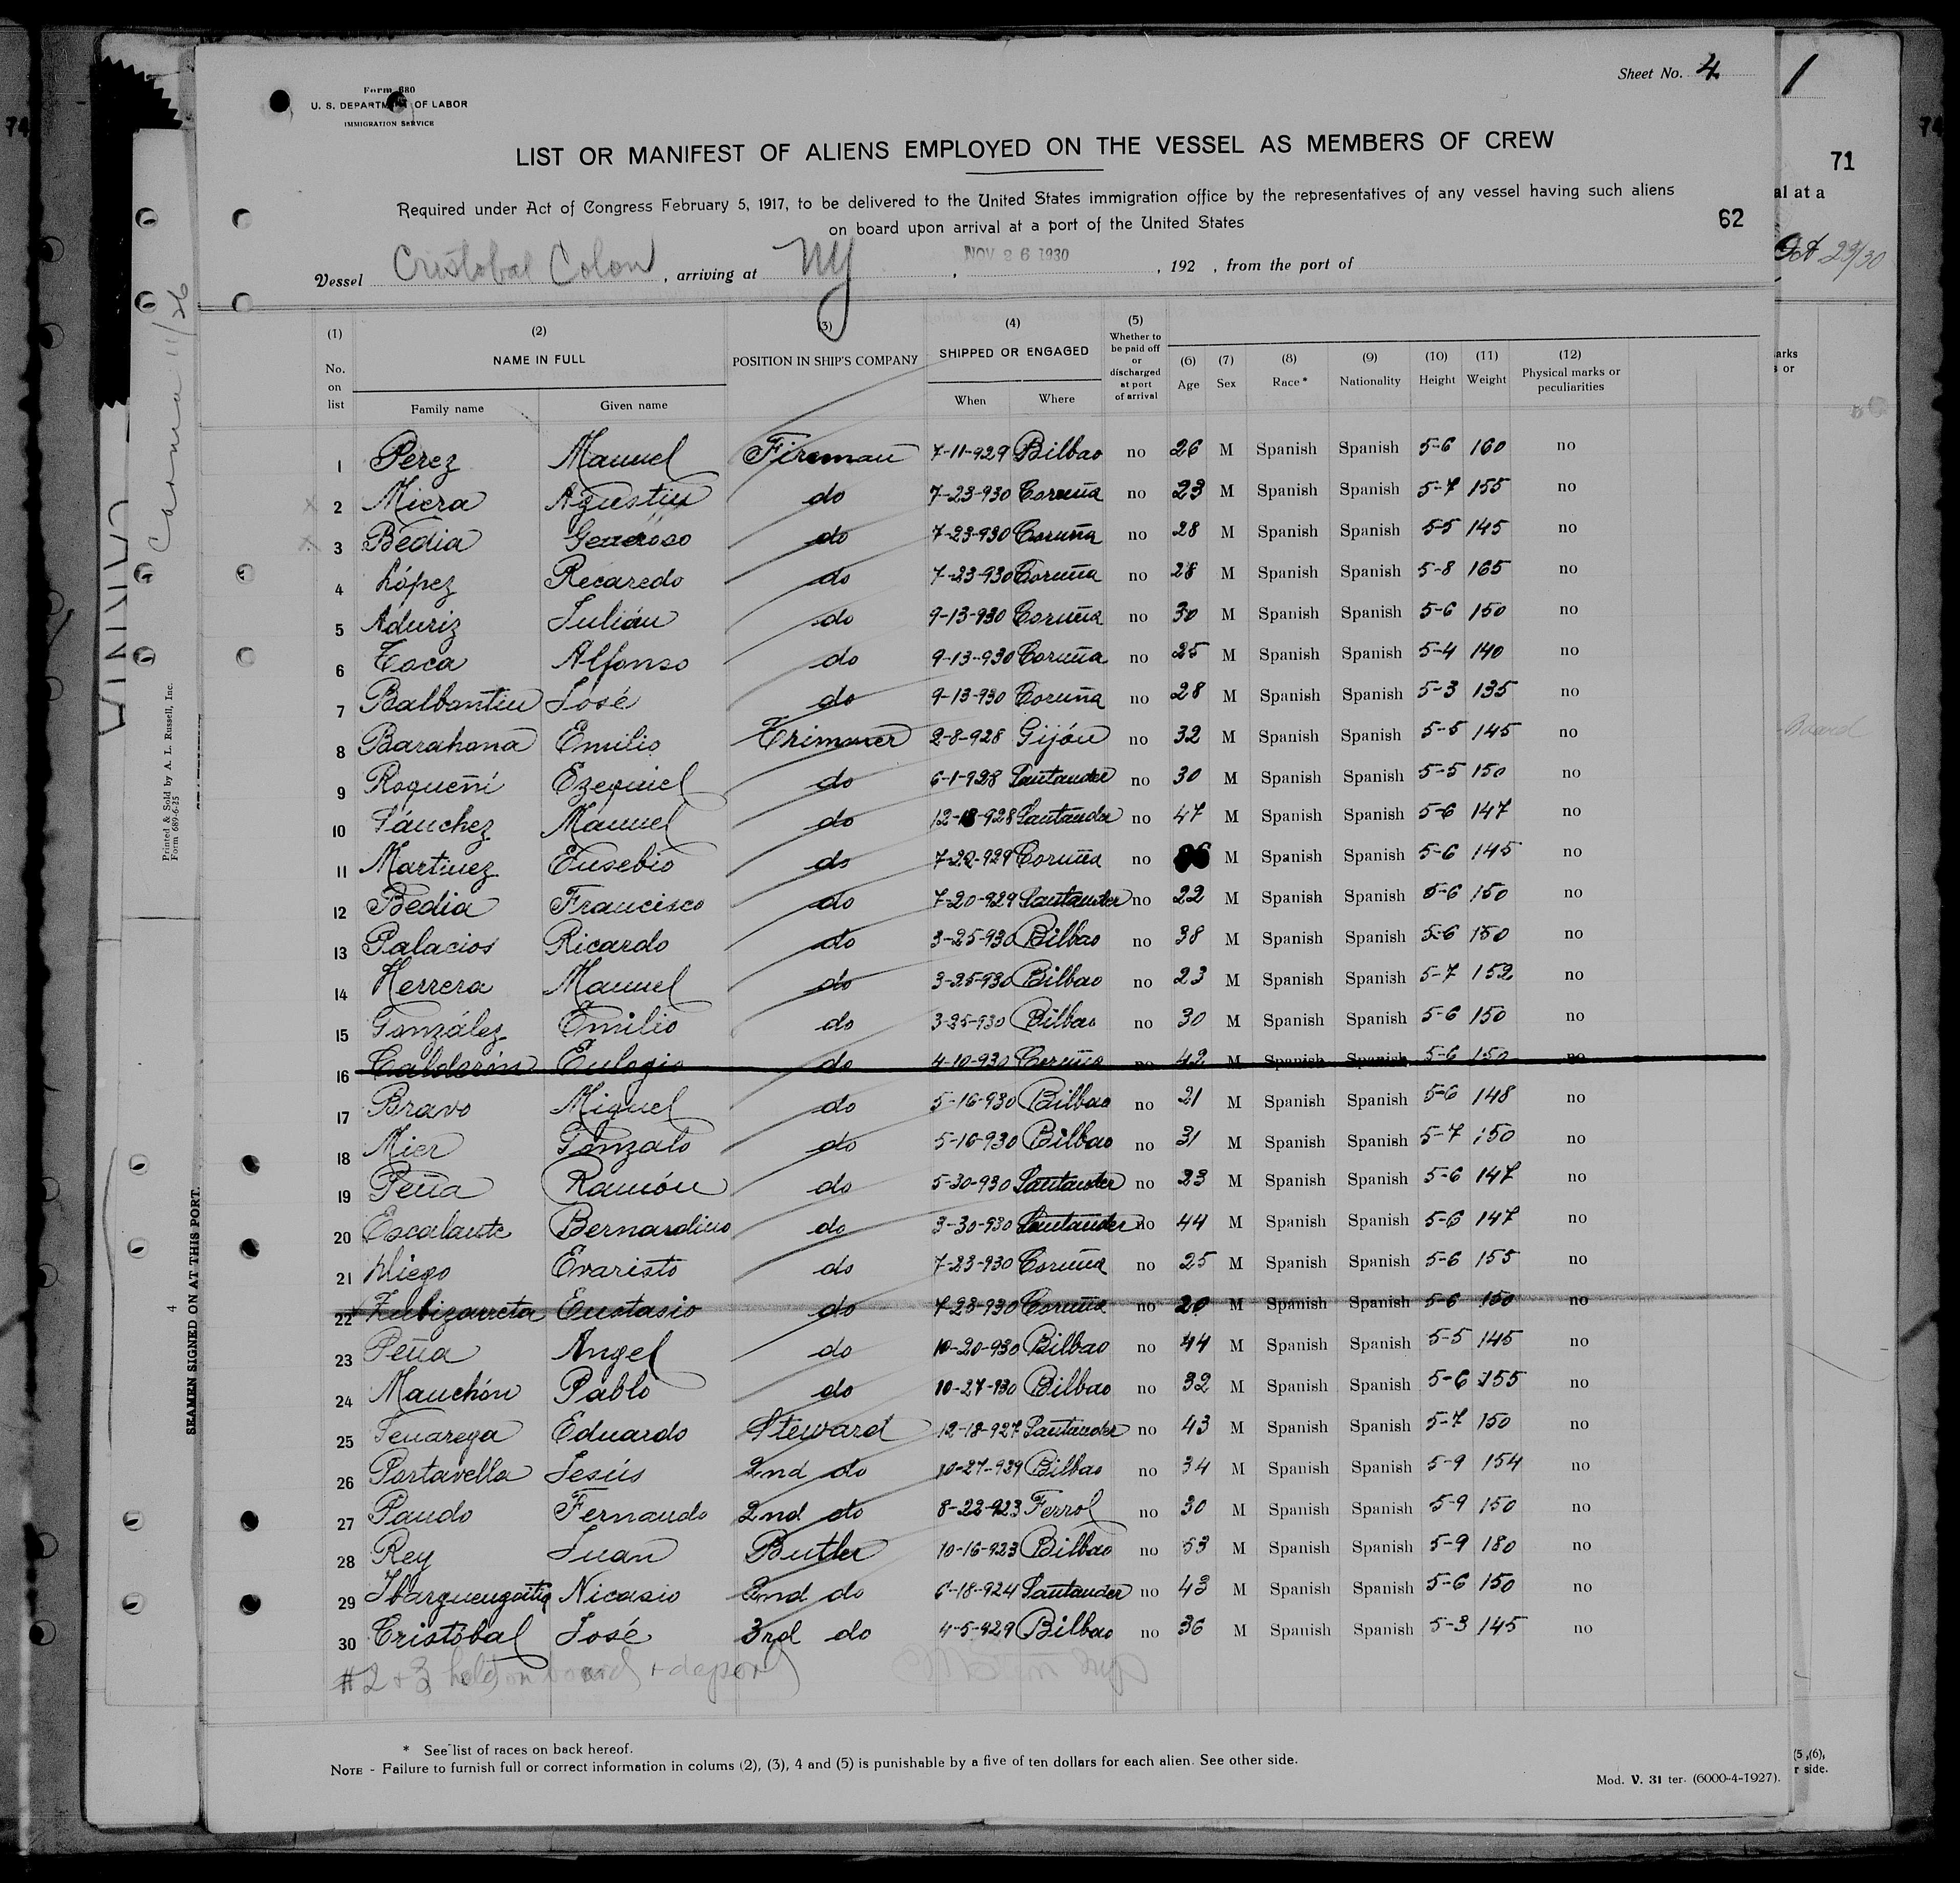 Sheet No. 4
1
Form 680
U. S. DEPARTMENT OF LABOR
IMMIGRATION SERVICE
LIST OR MANIFEST OF ALIENS EMPLOYED ON THE VESSEL AS MEMBERS OF CREW
71
Required under Act of Congress February 5, 1917, to be delivered to the United States immigration office by the representatives of any vessel having such aliens
al at a
on board upon arrival at a port of the United States
62
Vessel Cristobal Colon, arriving at NY, NOV 26 1930, 192 , from the port of
Oct 25/30
(1) (2) (3) (4) (5) (6) (7) (8) (9) (10) (11) (12)
No. on list NAME IN FULL Family name Given name POSITION IN SHIP'S COMPANY SHIPPED OR ENGAGED When Where Whether to be paid off or discharged at port of arrival Age Sex Race* Nationality Height Weight Physical marks or peculiarities
1 Perez Manuel Fireman 7-11-929 Bilbao no 26 M Spanish Spanish 5-6 160 no
x 2 Miera Agustin do 7-23-930 Coruña no 23 M Spanish Spanish 5-7 155 no
x 3 Bedia Generoso do 7-23-930 Coruña no 28 M Spanish Spanish 5-5 145 no
4 López Recaredo do 7-23-930 Coruña no 28 M Spanish Spanish 5-8 165 no
5 Aduriz Julián do 9-13-930 Coruña no 30 M Spanish Spanish 5-6 150 no
6 Toca Alfonso do 9-13-930 Coruña no 25 M Spanish Spanish 5-4 140 no
7 Balbontin José do 9-13-930 Coruña no 28 M Spanish Spanish 5-3 135 no
8 Barahona Emilio Trimmer 2-8-928 Gijón no 32 M Spanish Spanish 5-5 145 no
9 Roqueñi Ezequiel do 6-1-928 Santander no 30 M Spanish Spanish 5-5 150 no
10 Sánchez Manuel do 12-18-928 Santander no 47 M Spanish Spanish 5-6 147 no
11 Martinez Eusebio do 7-22-929 Coruña no M Spanish Spanish 5-6 145 no
12 Bedia Francisco do 7-20-929 Santander no 22 M Spanish Spanish 5-6 150 no
13 Palacios Ricardo do 3-25-930 Bilbao no 38 M Spanish Spanish 5-6 150 no
14 Herrera Manuel do 3-25-930 Bilbao no 23 M Spanish Spanish 5-7 152 no
15 González Emilio do 3-25-930 Bilbao no 30 M Spanish Spanish 5-6 150 no
16 Calderón Eulogio do 4-10-930 Coruña no 42 M Spanish Spanish 5-6 150 no
17 Bravo Miguel do 5-16-930 Bilbao no 21 M Spanish Spanish 5-6 148 no
18 Mier Gonzalo do 5-16-930 Bilbao no 31 M Spanish Spanish 5-7 150 no
19 Peña Ramón do 5-30-930 Santander no 23 M Spanish Spanish 5-6 147 no
20 Escalante Bernardino do 3-30-930 Santander no 44 M Spanish Spanish 5-6 147 no
21 Diego Evaristo do 7-23-930 Coruña no 25 M Spanish Spanish 5-6 155 no
22 Zubizarreta Eustasio do 7-23-930 Coruña no 20 M Spanish Spanish 5-6 150 no
23 Peña Angel do 10-20-930 Bilbao no 44 M Spanish Spanish 5-5 145 no
24 Manchón Pablo do 10-27-930 Bilbao no 32 M Spanish Spanish 5-6 155 no
25 Senarega Eduardo Steward 12-18-927 Santander no 43 M Spanish Spanish 5-7 150 no
26 Portavella Jesús 2nd do 10-27-929 Bilbao no 34 M Spanish Spanish 5-9 154 no
27 Pando Fernando 2nd do 8-22-923 Ferrol no 30 M Spanish Spanish 5-9 150 no
28 Rey Juan Butler 10-16-923 Bilbao no 53 M Spanish Spanish 5-9 180 no
29 Ibarguengoitia Nicasio 2nd do 6-18-924 Santander no 43 M Spanish Spanish 5-6 150 no
30 Cristóbal José 3rd do 4-5-929 Bilbao no 36 M Spanish Spanish 5-3 145 no
#2 + 3 held on board + deport
* See list of races on back hereof.
NOTE - Failure to furnish full or correct information in colums (2), (3), 4 and (5) is punishable by a five of ten dollars for each alien. See other side.
Mod. V. 31 ter. (6000-4-1927).
(5 ,(6),
r side.
Printed & Sold by A. L. Russell, Inc.
Form 689-6-25
4
SEAMEN SIGNED ON AT THIS PORT.